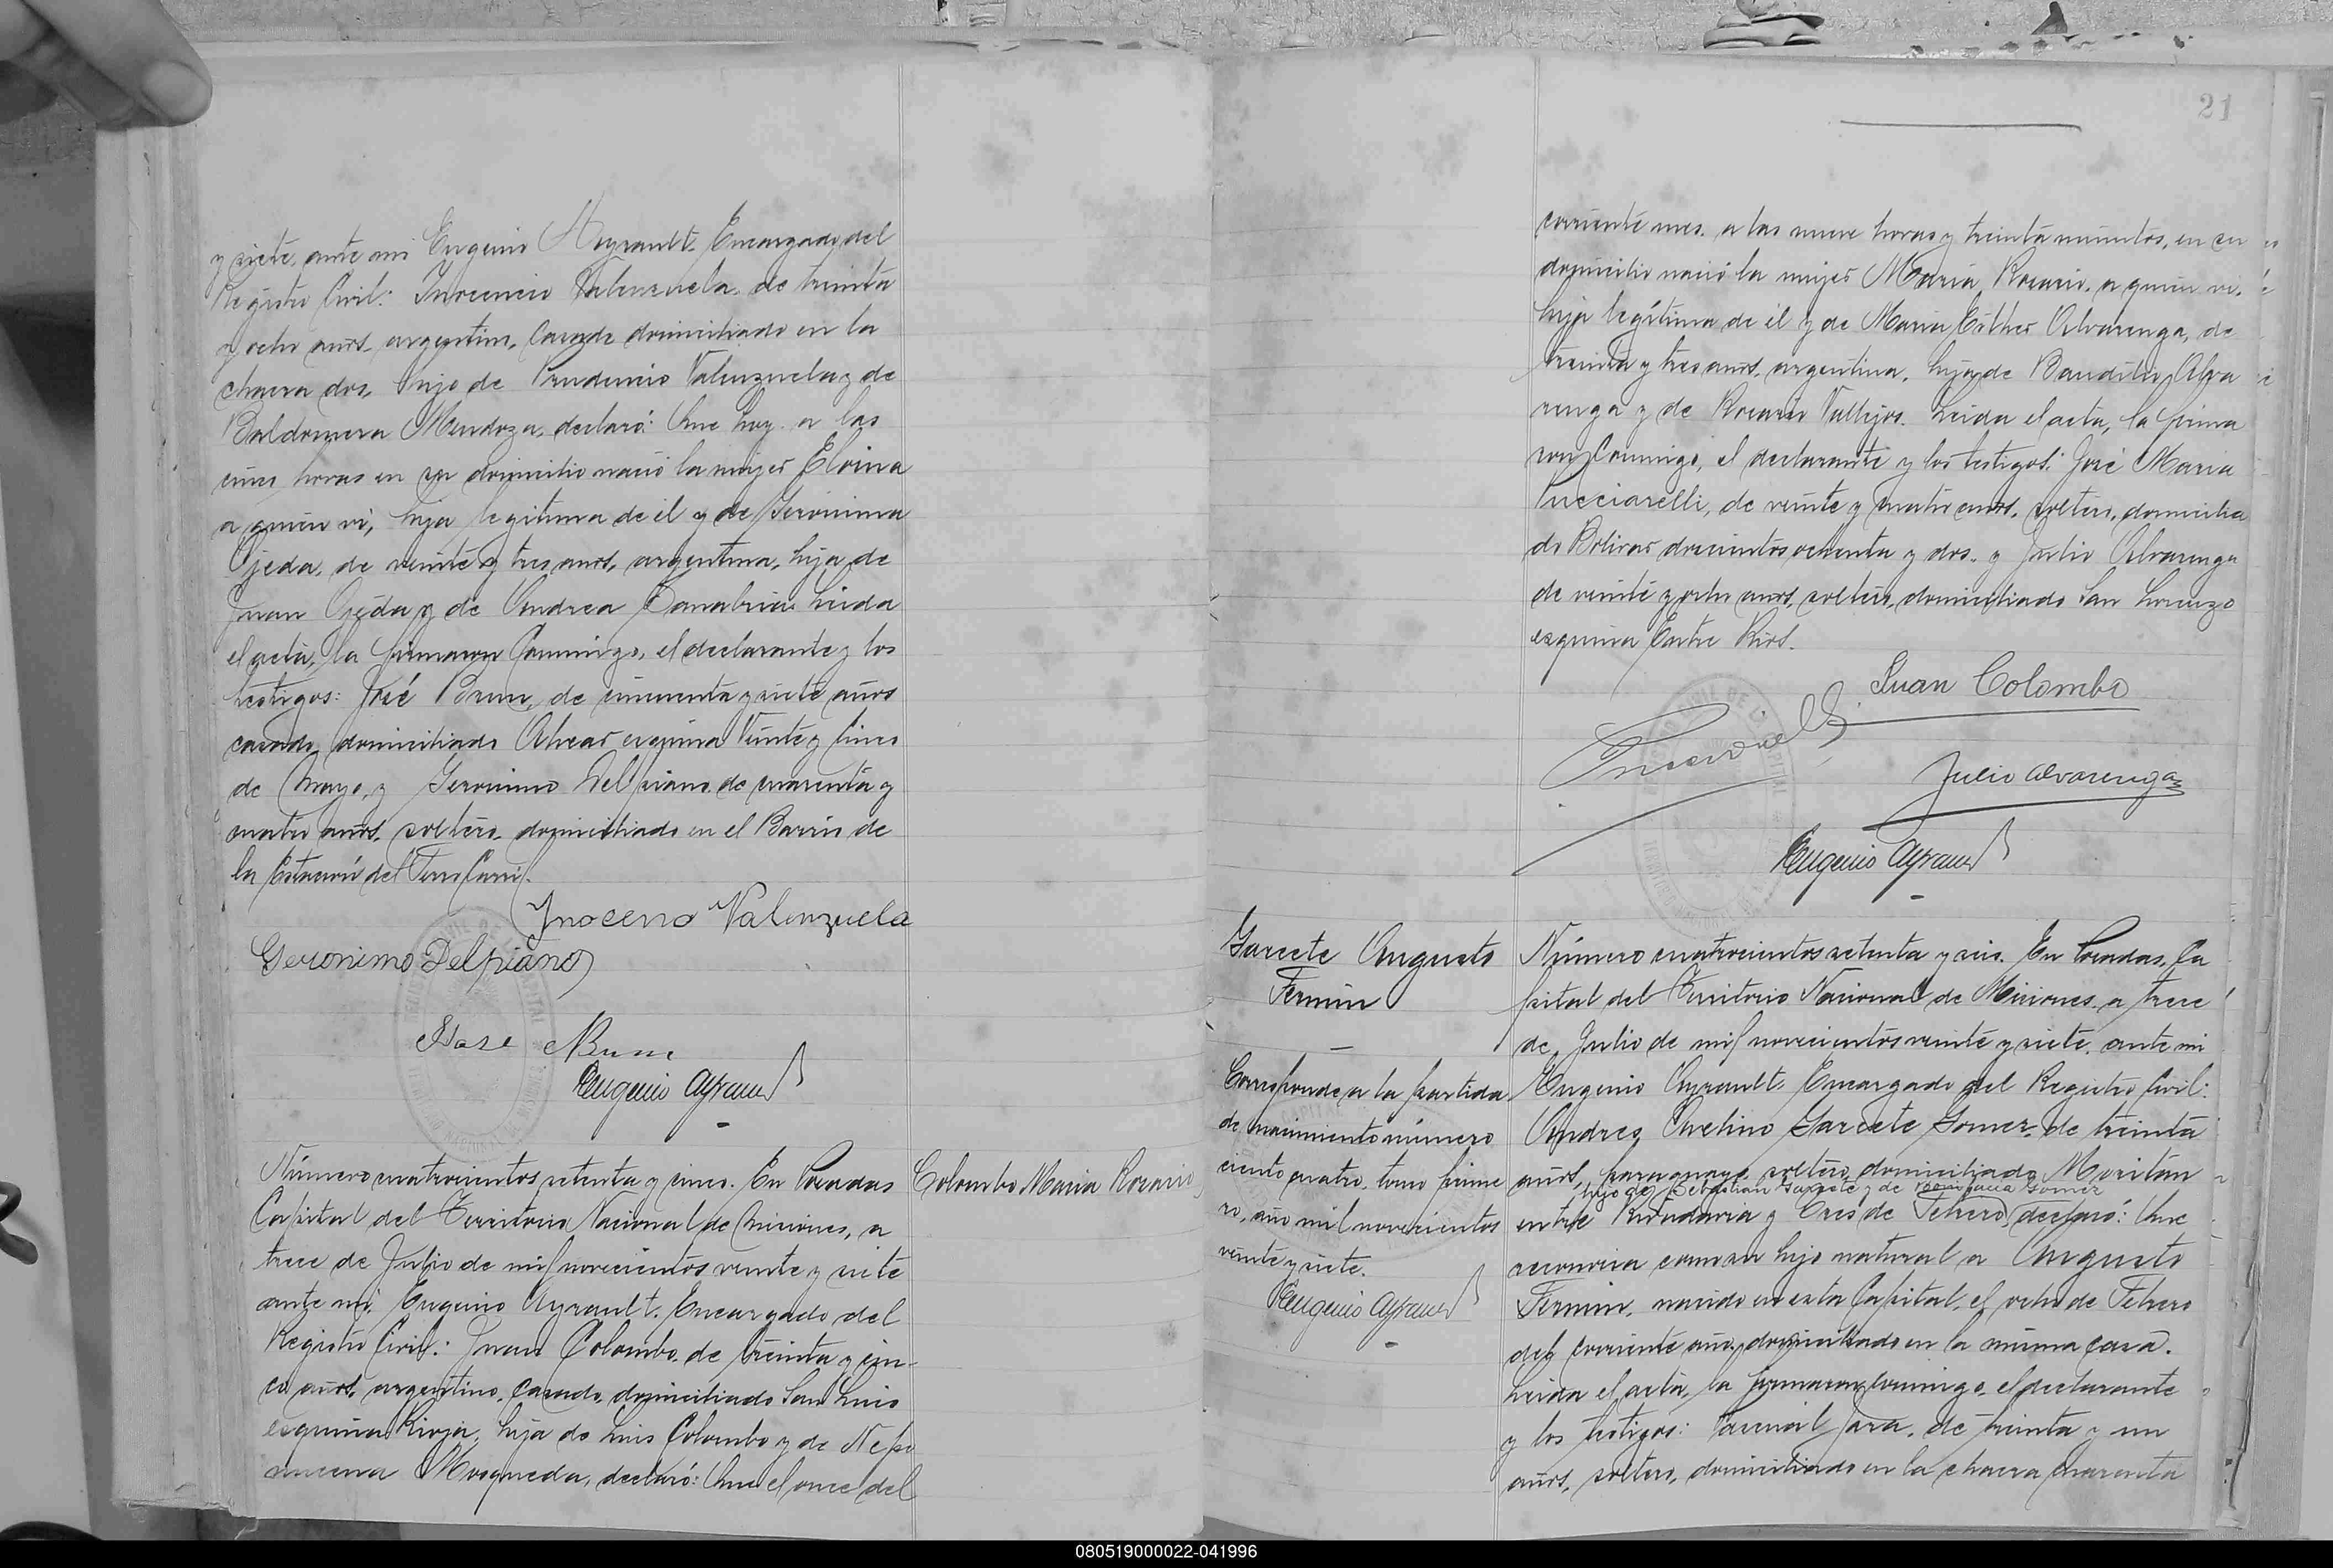 y siete, ante mi Eugenio Ayrault Encargado del
Registro Civil: Inocencio Valenzuela de treinta
y ocho años, argentino, casado domiciliado en la
chacra dos, hijo de Prudencio Valenzuela y de
Baldomera Mendoza, declaró: Que hoy a las
cinco horas en su domicilio nació la mujer Eloina
a quien vi, hija legitima de él y de Gerónima
Ojeda, de veinte y tres años, argentina, hija de
Juan Ojeda y de Andrea Sanabria. Leida
el acta, la firmaron conmigo, el declarante y los
testigos: José Brun, de cincuenta y siete años
casado, domiciliado Alvear esquina Veinte y Cinco
de Mayo, y Geronimo Delpiano de cuarenta y
cuatro años, soltero, domiciliado en el Barrio de
la Estación del Ferro Carril.
Inocencio Valenzuela
Geronimo Delpiano
Jose Brun
Eugenio Ayrault
Número cuatrocientos setenta y cinco. En Posadas
Colombo Maria Rosario
Capital del Territorio Nacional de Misiones, a
trece de Julio de mil novecientos veinte y siete
ante mi Eugenio Ayrault. Encargado del
Registro Civil: Juan Colombo, de treinta y cin-
co años, argentino, casado, domiciliado San Luis
esquina Rioja, hijo de Luis Colombo y de Nepo
mucena Mosqueda, declaró: Que el once del
21
corriente mes a las nueve horas y treinta minutos, en su
domicilio nació la mujer Maria Rosario, a quien vi,
hija legítima de él y de Maria Esther Alvarenga, de
treinta y tres años, argentina, hija de Baudilio Alva
renga y de Rosario Vallejos. Leida el acta, la firma
ron conmigo, el declarante y los testigos: José Maria
Pucciarelli, de veinte y cuatro años, soltero, domicilia
do Bolivar doscientos ochenta y dos, y Julio Alvarenga
de veinte y ocho años, soltero, domiciliado San Lorenzo
esquina Entre Rios.
Juan Colombo
Julio Alvarenga
Eugenio Ayrault
Garcete Augusto
Fermin
Corresponde a la partida
de nacimiento número
ciento cuatro, tomo prime
ro, año mil novecientos
veinte y siete.
Eugenio Ayrault
Número cuatrocientos setenta y seis. En Posadas, Ca
pital del Territorio Nacional de Misiones, a trece
de Julio de mil novecientos veinte y siete, ante mi
Eugenio Ayrault Encargado del Registro Civil:
Andres Avelino Garcete Gomez, de treinta
años, paraguayo, soltero, domiciliado Maritán
hijo de Sebastian Garcete y de Gomez
entre Rivadavia y Tres de Febrero declaró: Que
reconocia como su hijo natural a Augusto
Fermin, nacido en esta Capital, el ocho de Febrero
del corriente año, domiciliado en la misma casa.
Leida el acta, la firmaron conmigo, el declarante
y los testigos: Pascual Jara, de treinta y un
años, soltero, domiciliado en la chacra cuarenta
080519000022-041996